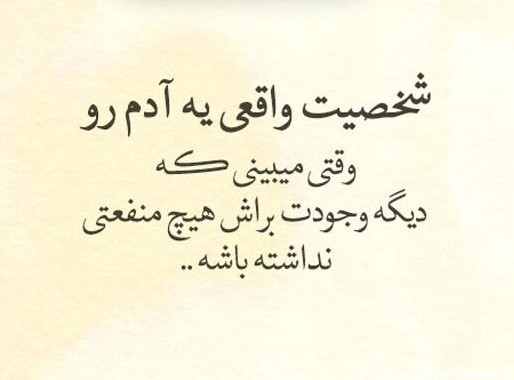 شخصیت واقعی یه آدم رو
وقتی میبینی که
دیگه وجودت براش هیچ منفعتی
نداشته باشه ..